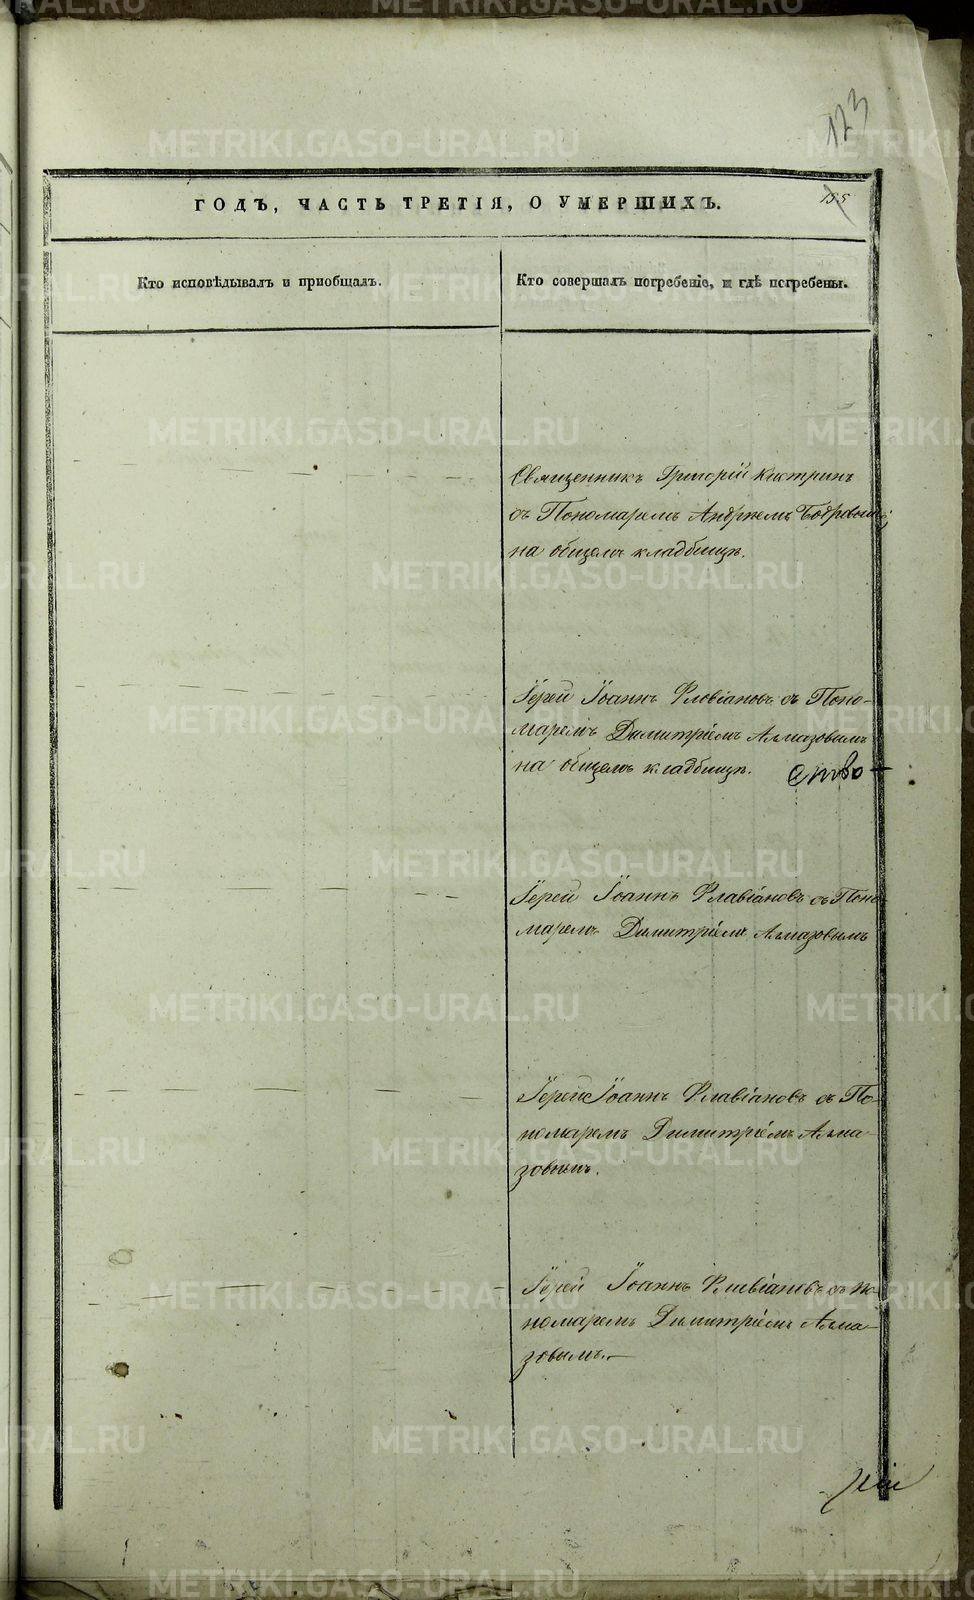 123
ГОДЪ, ЧАСТЬ ТРЕТІЯ, О УМЕРШИХЪ.
155
Кто исповѣдывалъ и пріобщалъ.
Кто совершалъ погребеніе, и гдѣ погребены.
Священникъ Григорій Кастринъ
съ Пономаремъ Андреемъ
на общемъ кладбищѣ.
Іерей Іоаннъ Флавіановъ съ Поно-
маремъ Димитріемъ Алмазовымъ
на общемъ кладбищѣ.
Іерей Іоаннъ Флавіановъ съ Поно
маремъ Димитріемъ Алмазовымъ
Іерей Іоаннъ Флавіановъ съ По-
номаремъ Димитріемъ Алма-
зовымъ.
Іерей Іоаннъ Флавіановъ съ по-
номаремъ Димитріемъ Алма-
зовымъ.
METRIKI.GASO-URAL.RU